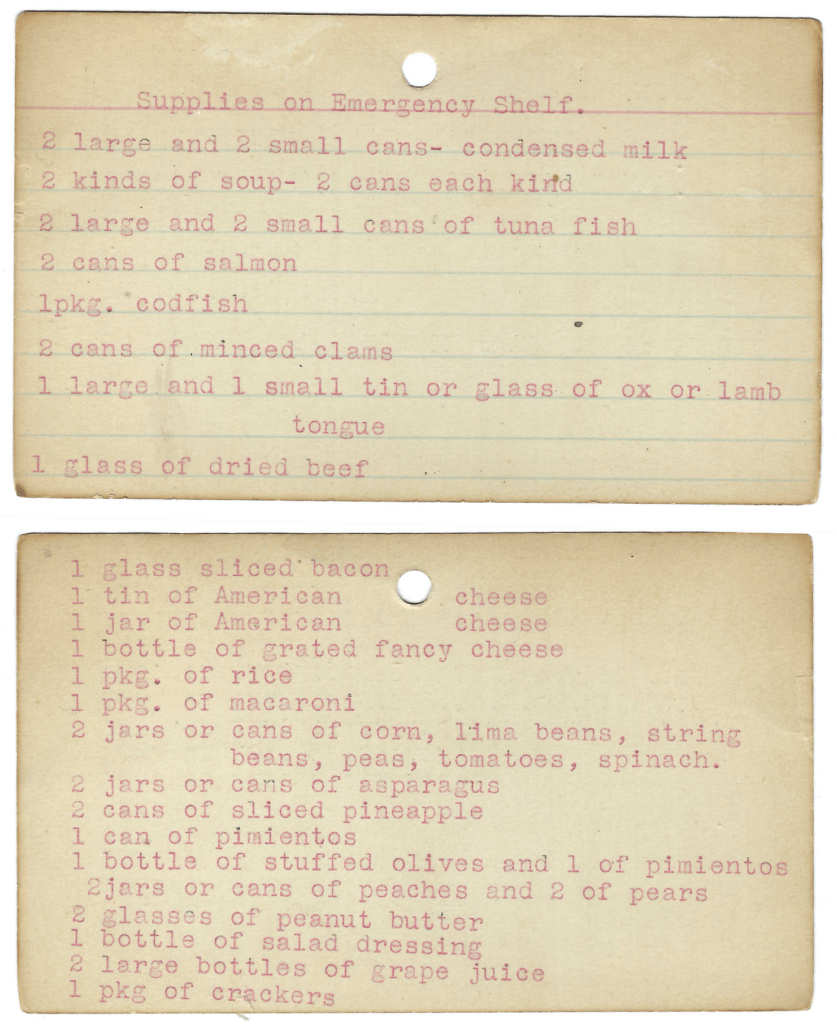 Supplies on Emergency Shelf.
2 large and 2 small cans- condensed milk
2 kinds of soup- 2 cans each kind
2 large and 2 small cans of tuna fish
2 cans of salmon
1pkg. codfish
2 cans of minced clams
1 large and 1 small tin or glass of ox or lamb
tongue
1 glass of dried beef
1 glass sliced bacon
1 tin of American cheese
1 jar of American cheese
1 bottle of grated fancy cheese
1 pkg. of rice
1 pkg. of macaroni
2 jars or cans of corn, lima beans, string
beans, peas, tomatoes, spinach.
2 jars or cans of asparagus
2 cans of sliced pineapple
1 can of pimientos
1 bottle of stuffed olives and 1 of pimientos
2jars or cans of peaches and 2 of pears
2 glasses of peanut butter
1 bottle of salad dressing
2 large bottles of grape juice
1 pkg of crackers